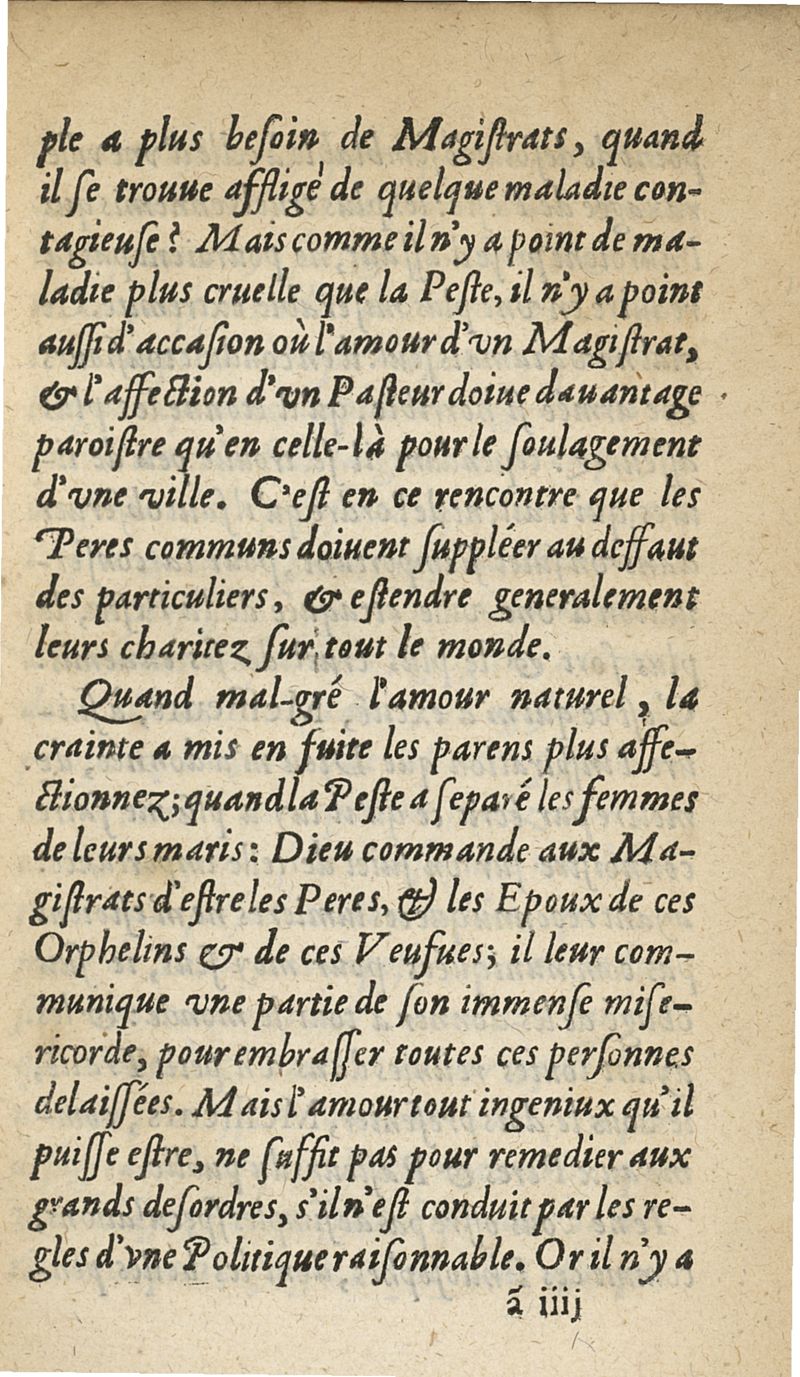 ple a plus beſoin de Magiſtrats, quand
il ſe trouue affligé de quelque maladie con-
tagieuſe? Mais comme il n'y a point de ma-
ladie plus cruelle que la Peſte, il n'y a point
auſſi d'accaſion où l'amour d'vn Magiſtrat,
& l'affection d'vn Paſteur doiue dauantage
paroiſtre qu'en celle-là pour le ſoulagement
d'vne ville. C'eſt en ce rencontre que les
Peres communs doiuent ſuppléer au deffaut
des particuliers, & eſtendre generalement
leurs charitez ſur tout le monde.
Quand mal-gré l'amour naturel, la
crainte a mis en fuite les parens plus affe-
ctionnez; quand la Peſte a ſeparé les femmes
de leurs maris: Dieu commande aux Ma-
giſtrats d'eſtre les Peres, & les Epoux de ces
Orphelins & de ces Veufues; il leur com-
munique vne partie de ſon immenſe miſe-
ricorde, pour embraſſer toutes ces perſonnes
delaiſſées. Mais l'amour tout ingeniux qu'il
puiſſe eſtre, ne ſuffit pas pour remedier aux
grands deſordres, s'il n'eſt conduit par les re-
gles d'vne Politique raiſonnable. Or il n'y a
ã iiij